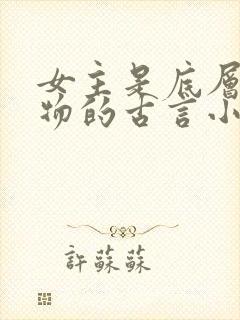 女主是底層
物的古言小
許蘇蘇